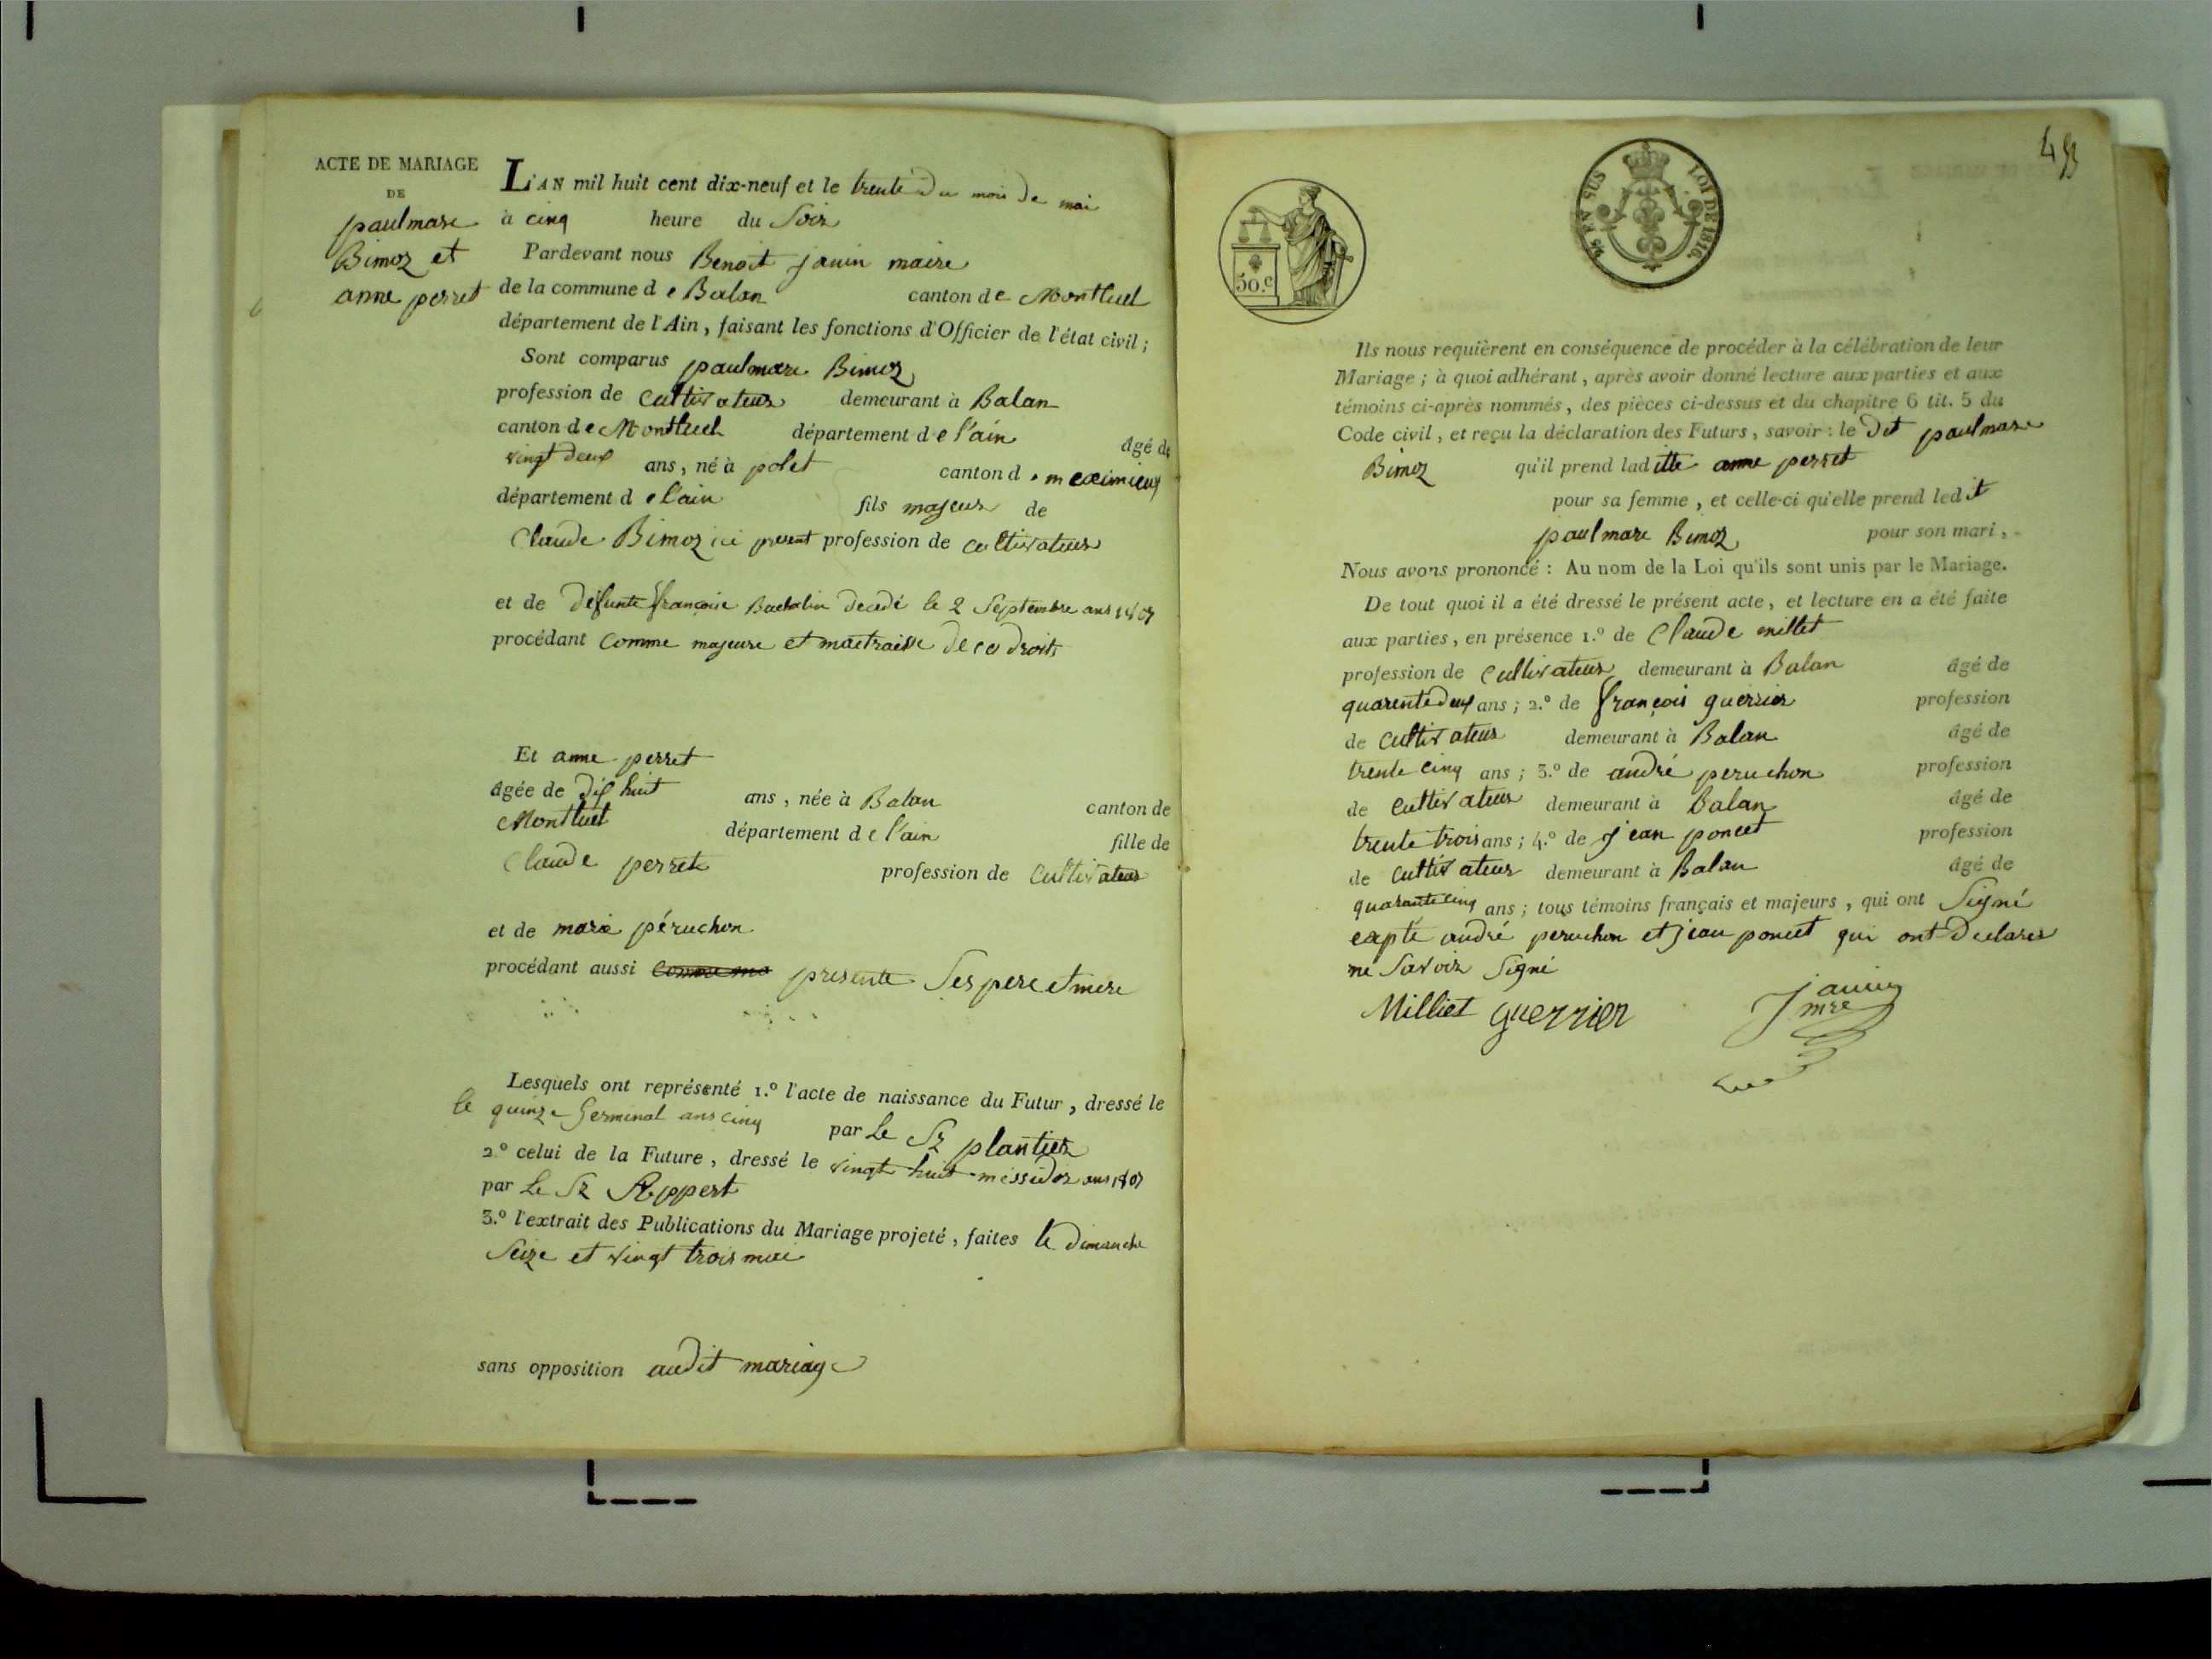 ACTE DE MARIAGE
DE
paul marc
Bimoz et
anne perret
L'AN mil huit cent dix-neuf et le trente du mois de mai
à cinq heure du Soir
Pardevant nous Benoit janin maire
de la commune de Balan canton de Montluel
département de l'Ain, faisant les fonctions d'Officier de l'état civil ;
Sont comparus paul marc Bimoz
profession de cultivateur demeurant à Balan
canton de Montluel département de l'ain âgé de
vingt deux ans, né à polet canton de meximieux
département de l'ain fils majeur de
Claude Bimoz ici present profession de cultivateur
et de defunte françoise decedé le 2 Septembre ans 1807
procédant comme majeure et maitraisse de ce droits
Et anne perret
âgée de dix huit ans, née à Balan canton de
Montluel département de l'ain fille de
Claude perret profession de cultivateur
et de marie péruchon
procédant aussi presente Ses pere et mere
Lesquels ont représenté 1.º l'acte de naissance du Futur, dressé le
le quinze Germinal ans cinq par le Sr plantier
2.º celui de la Future, dressé le vingt huit messidor ans
par le Sr
3.º l'extrait des Publications du Mariage projeté, faites le dimanche
Seize et vingt trois mai
sans opposition audit mariage
49
50.c
45 EN SUS LOI DE 1816.
Ils nous requièrent en conséquence de procéder à la célébration de leur
Mariage ; à quoi adhérant, après avoir donné lecture aux parties et aux
témoins ci-après nommés, des pièces ci-dessus et du chapitre 6 tit. 5 du
Code civil, et reçu la déclaration des Futurs, savoir : le dit paul marc
Bimoz qu'il prend laditte anne perret
pour sa femme, et celle-ci qu'elle prend ledit
paul marc Bimoz pour son mari,
Nous avons prononcé : Au nom de la Loi qu'ils sont unis par le Mariage.
De tout quoi il a été dressé le présent acte, et lecture en a été faite
aux parties, en présence 1.º de Claude millet
profession de cultivateur demeurant à Balan âgé de
quarente deux ans ; 2.º de françois guerrier profession
de cultivateur demeurant à Balan âgé de
trente cinq ans ; 3.º de andré peruchon profession
de cultivateur demeurant à Balan âgé de
trente trois ans ; 4.º de jean poncet profession
de cultivateur demeurant à Balan âgé de
quarante cinq ans ; tous témoins français et majeurs, qui ont Signé
expté andré peruchon et jean poncet qui ont declares
ne Savoir Signé
Milliet guerrier janin
mre